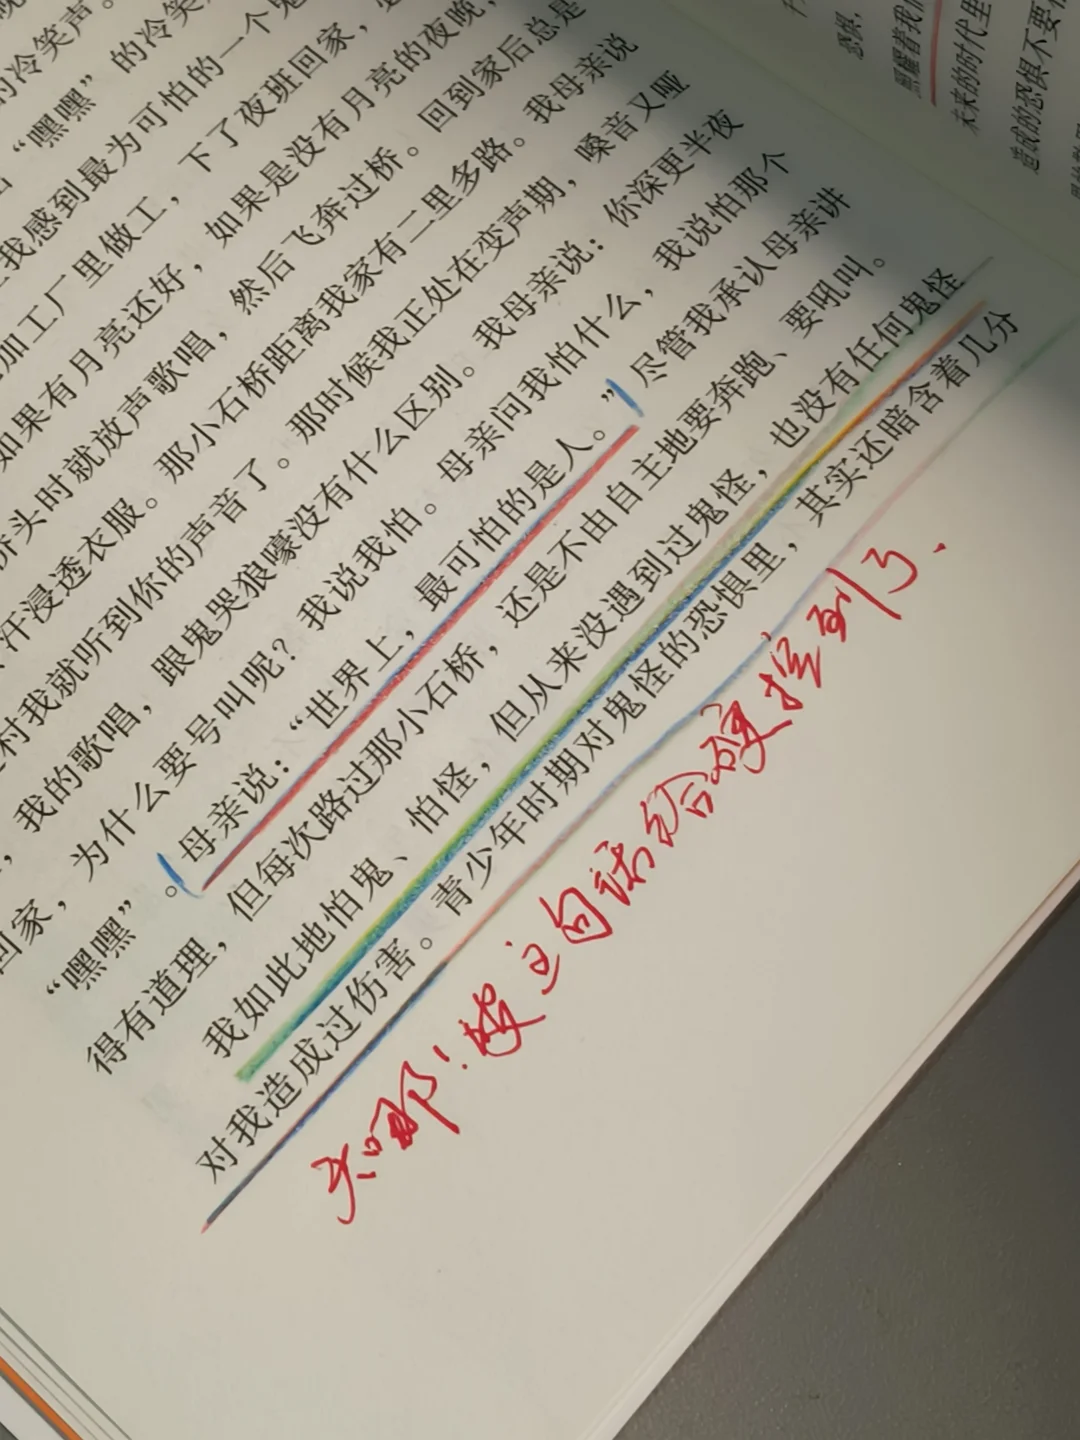 的冷笑声。
“嘿嘿”的冷笑
我感到最为可怕的一个
加工厂里做工，下了夜班回家，
如果有月亮还好，如果是没有月亮的夜晚，
桥头时就放声歌唱，然后飞奔过桥。回到家后总是
汗浸透衣服。那小石桥距离我家有二里多路。我母亲说
村我就听到你的声音了。那时候我正处在变声期，嗓音又哑
，我的歌唱，跟鬼哭狼嚎没有什么区别。我母亲说：你深更半夜
回家，为什么要号叫呢？我说我怕。母亲问我怕什么，我说怕那个
“嘿嘿”。母亲说：“世界上，最可怕的是人。”尽管我承认母亲讲
得有道理，但每次路过那小石桥，还是不由自主地要奔跑、要吼叫。
我如此地怕鬼、怕怪，但从来没遇到过鬼怪，也没有任何鬼怪
对我造成过伤害。青少年时期对鬼怪的恐惧里，其实还暗含着几分
天哪！被这句话给硬控到了.
恐惧，
照耀着我们
未来的时代里
造成的恐惧不要